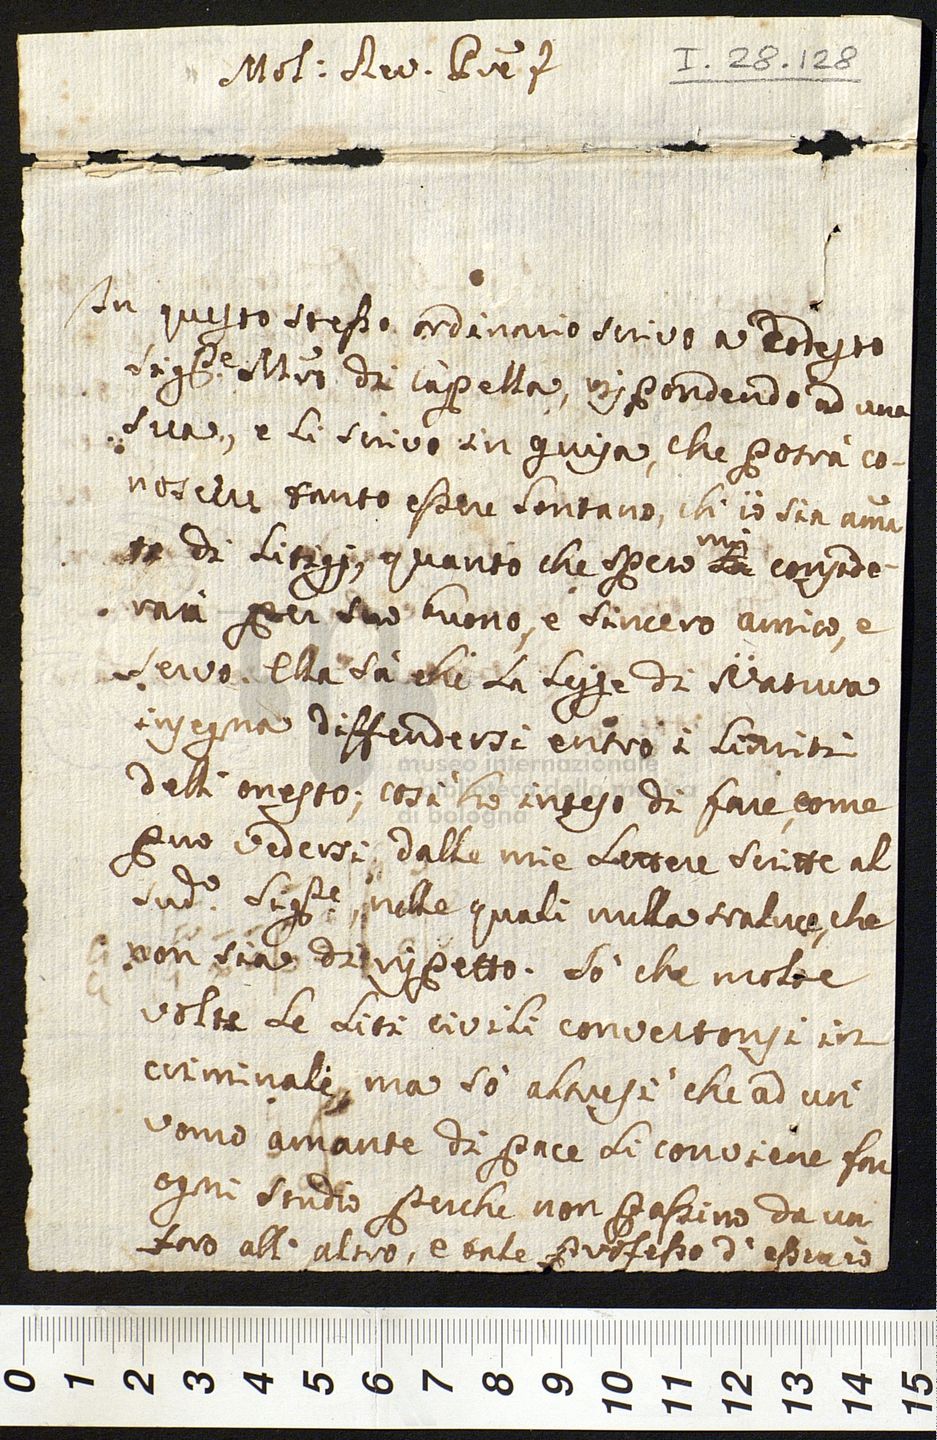 Mol: Rev. Pre
I. 28.128
In questo stesso ordinario scrivo a Codesto
Sigre Mro di Capella, rispondendo ad una
sua, e li scrivo in guisa, che potrà co-
noscere tanto essere lontano, chi io sia aman
te di Litigj, quanto che spero mi conside-
rarà per suo buono, e sincero amico, e
servo. Ella sà che La Legge di Natura
insegna diffendersi entro i Limiti
dell' onesto; così hò inteso di fare, come
puo vedersi dalle mie Lettere scritte al
sudo. Sigre, nelle quali nulla traluce, che
non sia di rispetto. Sò che molte
volte Le Liti civili convertonsi in
criminali, ma sò altresi che ad un
uomo amante di pace Li conviene far
ogni studio perche non passino da un
foro all' altro, e tale professo d' esser io
museo internazionale
e biblioteca della musica
di bologna
0 1 2 3 4 5 6 7 8 9 10 11 12 13 14 15